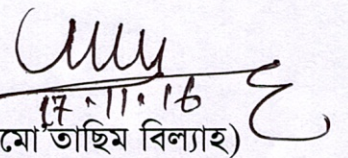 17.11.16
মো তাছিম বিল্যাহ)